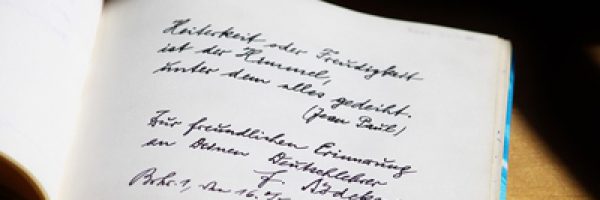 Heiterkeit oder Freudigkeit
ist der Himmel,
unter dem alles gedeiht.
(Jean Paul)
Zur freundlichen Erinnerung
an Deinen Deutschlehrer
F.
den 16.